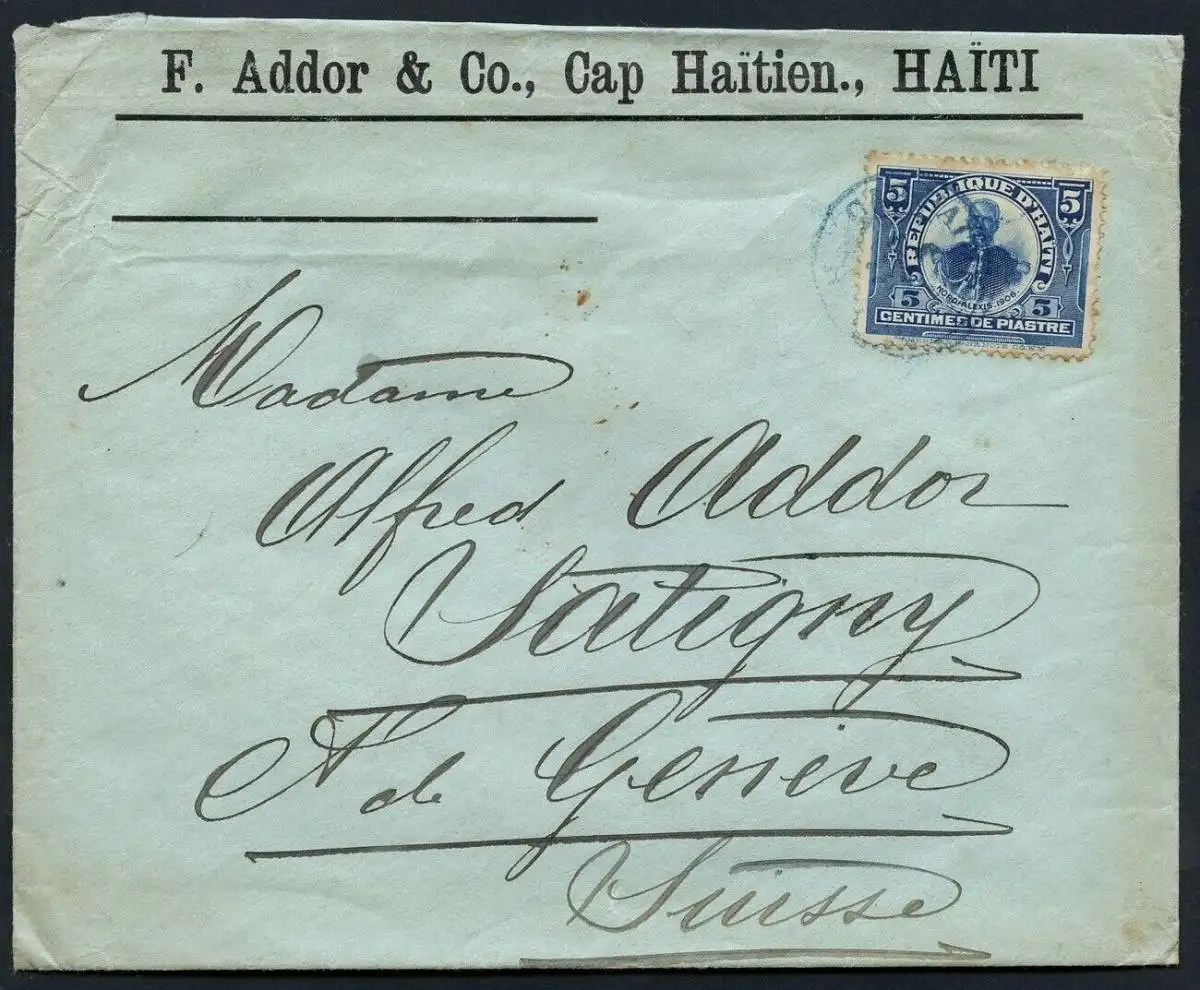 F. Addor & Co., Cap Haïtien., HAÏTI
5 5
REPUBLIQUE D'HAÏTI
NORD ALEXIS. 1906.
5 5
CENTIMES DE PIASTRE
Madame
Alfred Addor
Satigny
de Genève
Suisse